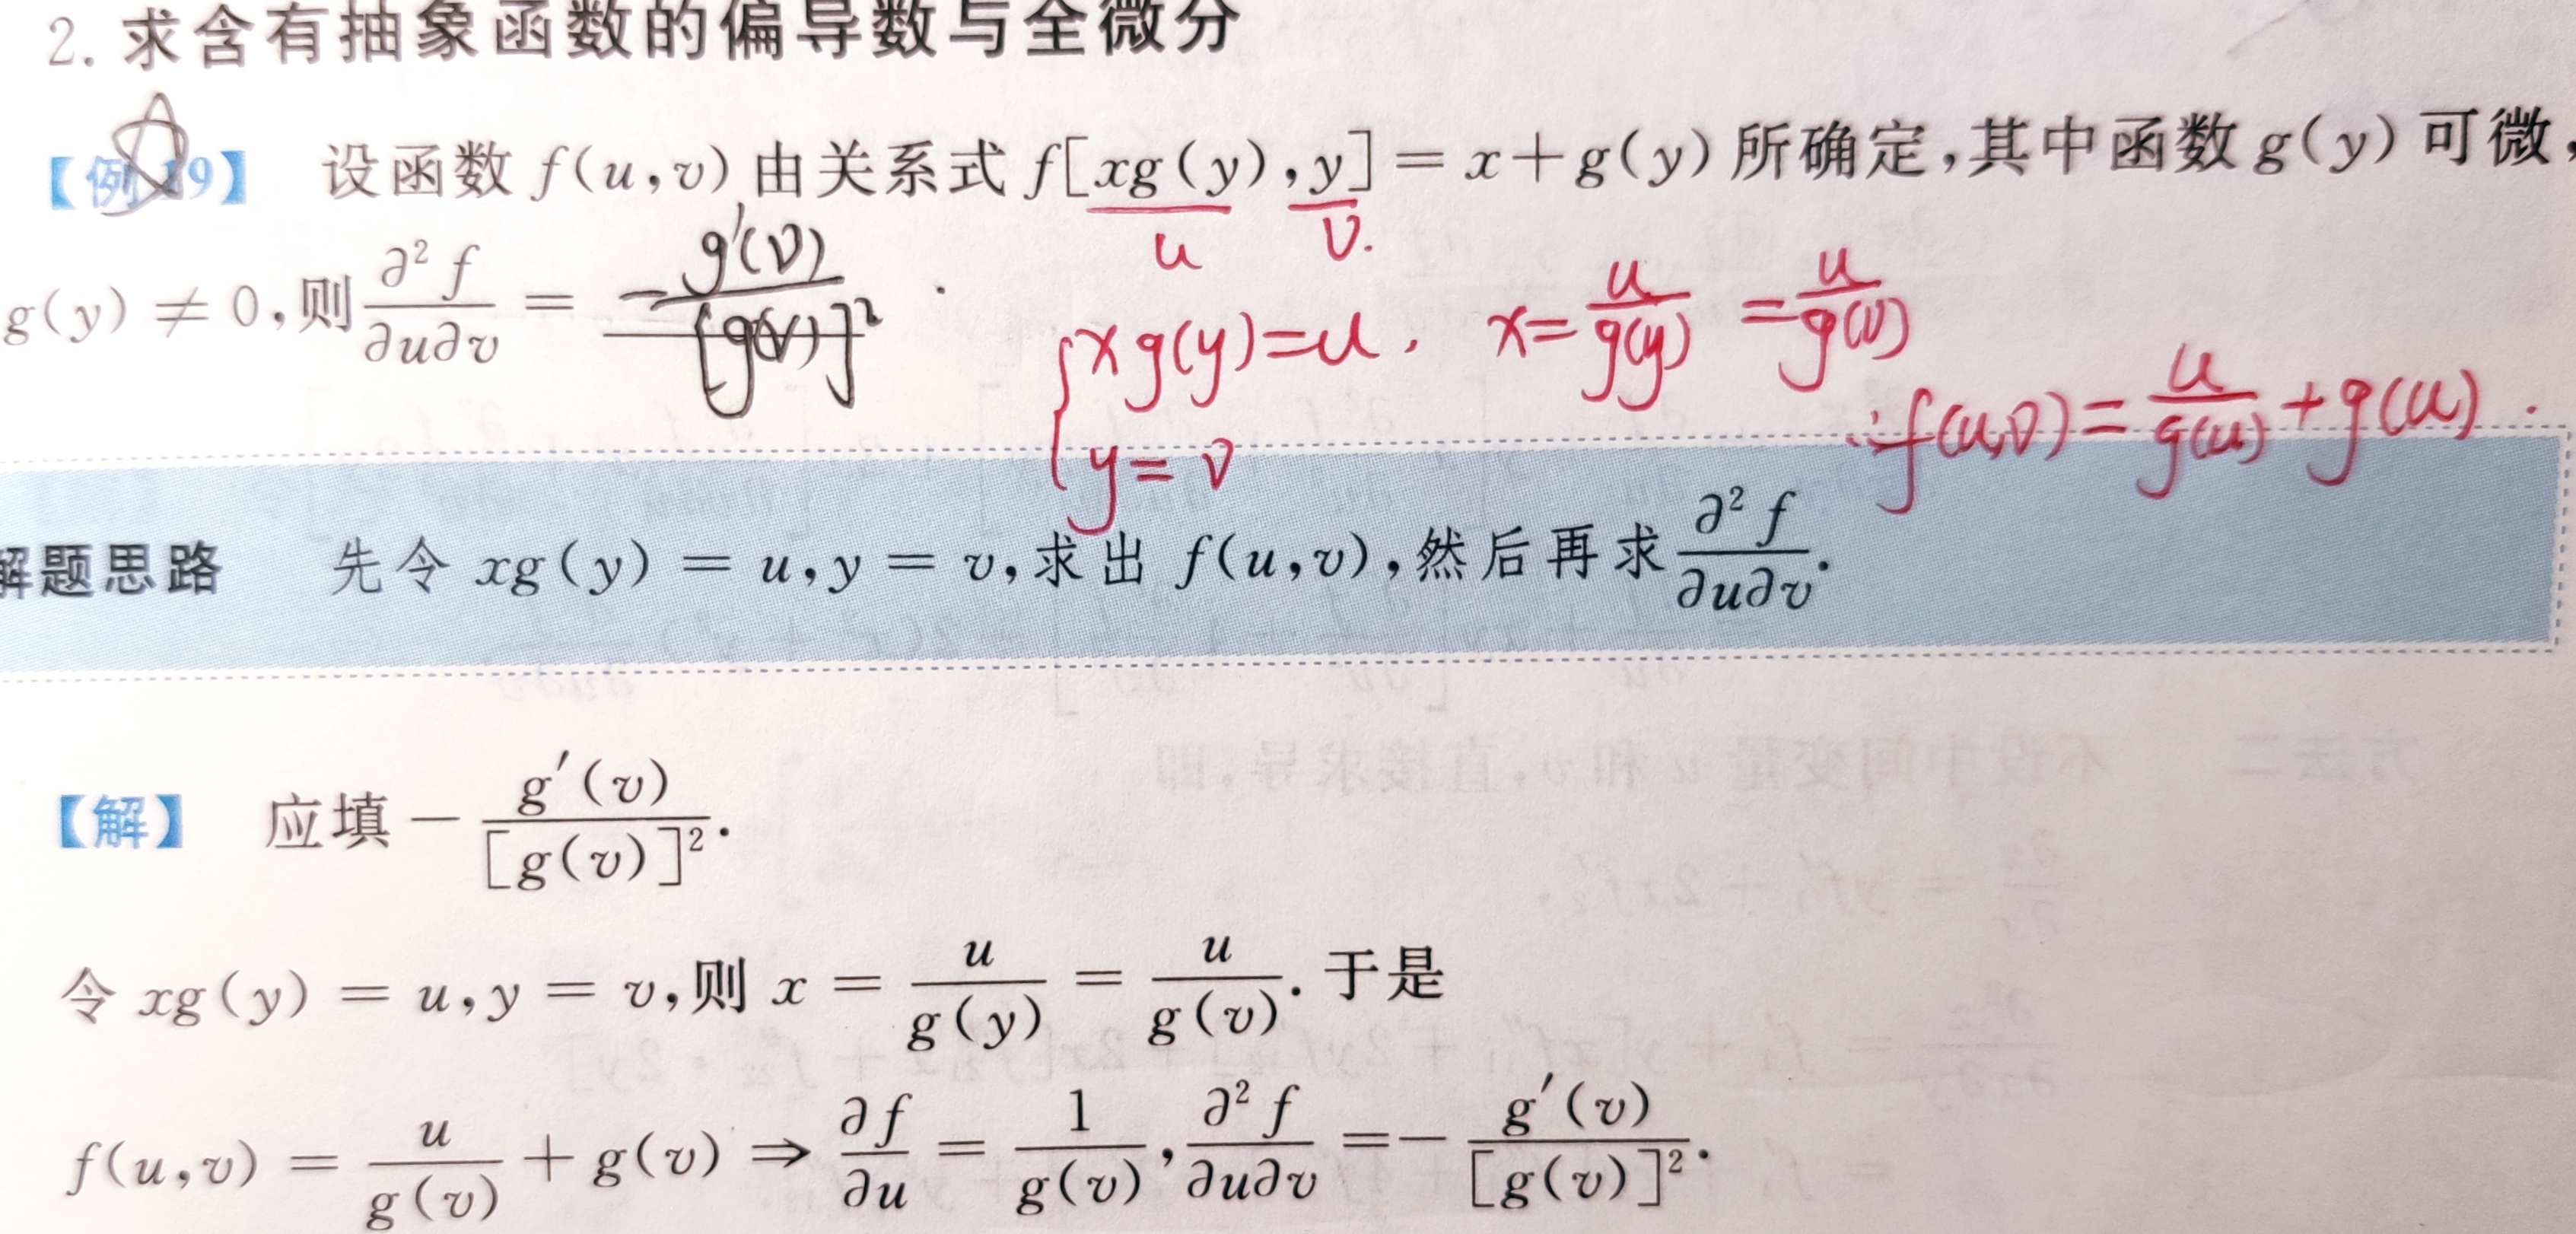 2. 求含有抽象函数的偏导数与全微分
【例19】 设函数 f(u,v) 由关系式 f[xg(y),y] = x+g(y) 所确定,其中函数 g(y) 可微,
u v.
g(y) ≠ 0,则 ∂²f/∂u∂v = -g′(v)/[g(v)]² .
{xg(y)=u, x=u/g(y) =u/g(v)
y=v
∴f(u,v)=u/g(u)+g(u).
解题思路 先令 xg(y) = u,y = v,求出 f(u,v),然后再求 ∂²f/∂u∂v.
【解】 应填 - g′(v)/[g(v)]².
令 xg(y) = u,y = v,则 x = u/g(y) = u/g(v). 于是
f(u,v) = u/g(v) + g(v) ⇒ ∂f/∂u = 1/g(v), ∂²f/∂u∂v = - g′(v)/[g(v)]².